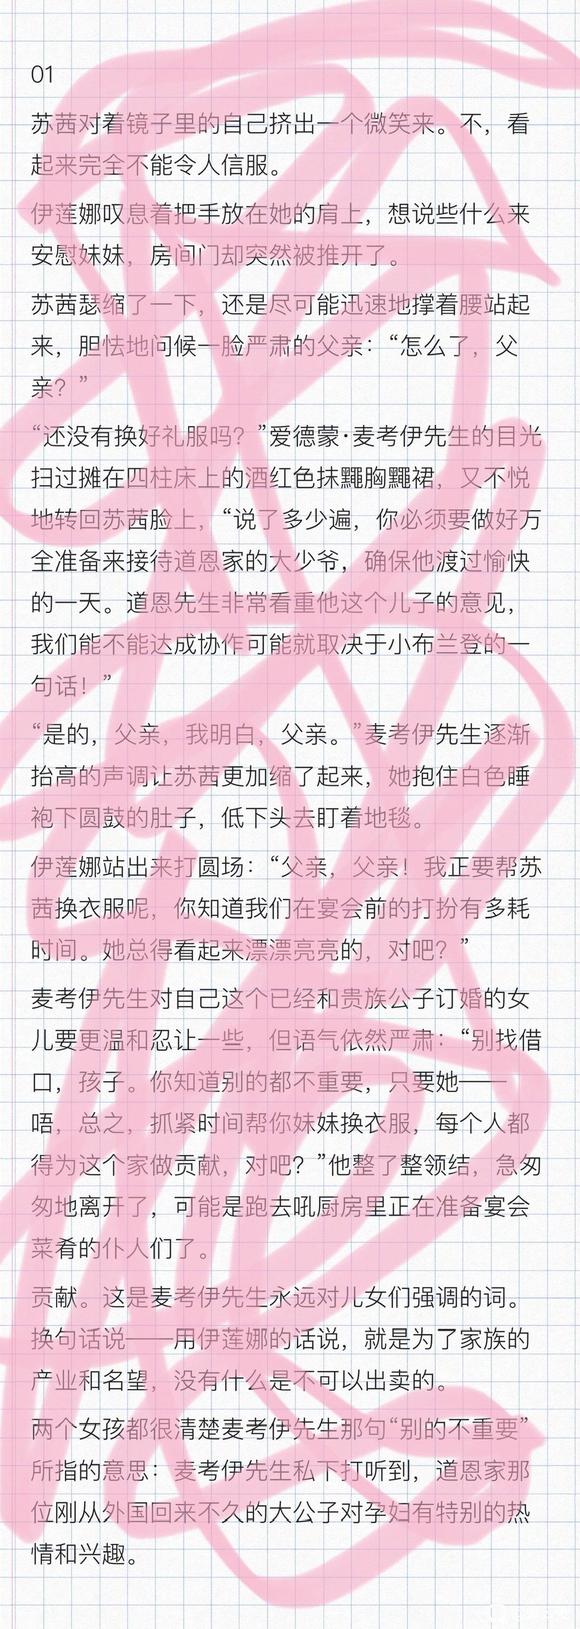 01
苏茜对着镜子里的自己挤出一个微笑来。不，看
起来完全不能令人信服。
伊莲娜叹息着把手放在她的肩上，想说些什么来
安慰妹妹，房间门却突然被推开了。
苏茜瑟缩了一下，还是尽可能迅速地撑着腰站起
来，胆怯地问候一脸严肃的父亲：“怎么了，父
亲？”
“还没有换好礼服吗？”爱德蒙·麦考伊先生的目光
扫过摊在四柱床上的酒红色抹黷胸黷裙，又不悦
地转回苏茜脸上，“说了多少遍，你必须要做好万
全准备来接待道恩家的大少爷，确保他渡过愉快
的一天。道恩先生非常看重他这个儿子的意见，
我们能不能达成协作可能就取决于小布兰登的一
句话！”
“是的，父亲，我明白，父亲。”麦考伊先生逐渐
抬高的声调让苏茜更加缩了起来，她抱住白色睡
袍下圆鼓的肚子，低下头去盯着地毯。
伊莲娜站出来打圆场：“父亲，父亲！我正要帮苏
茜换衣服呢，你知道我们在宴会前的打扮有多耗
时间。她总得看起来漂漂亮亮的，对吧？”
麦考伊先生对自己这个已经和贵族公子订婚的女
儿要更温和忍让一些，但语气依然严肃：“别找借
口，孩子。你知道别的都不重要，只要她——
唔，总之，抓紧时间帮你妹妹换衣服，每个人都
得为这个家做贡献，对吧？”他整了整领结，急匆
匆地离开了，可能是跑去吼厨房里正在准备宴会
菜肴的仆人们了。
贡献。这是麦考伊先生永远对儿女们强调的词。
换句话说——用伊莲娜的话说，就是为了家族的
产业和名望，没有什么是不可以出卖的。
两个女孩都很清楚麦考伊先生那句“别的不重要”
所指的意思：麦考伊先生私下打听到，道恩家那
位刚从外国回来不久的大公子对孕妇有特别的热
情和兴趣。